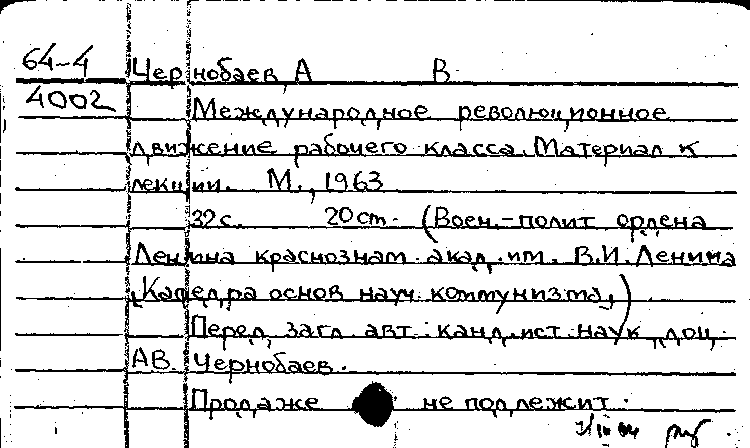 64-4
4002
Чернобаев, А В.
Международное революционное
движение рабочего класса. Материал к
лекции. М., 1963
32 с. 20 cm. (Воен.-полит ордена
Ленина краснознам. акад. им. В.И. Ленина
Кафедра основ науч. коммунизма.)
Перед загл. авт.: канд. ист. наук, доц.
АВ. Чернобаев.
Продаже не подлежит.